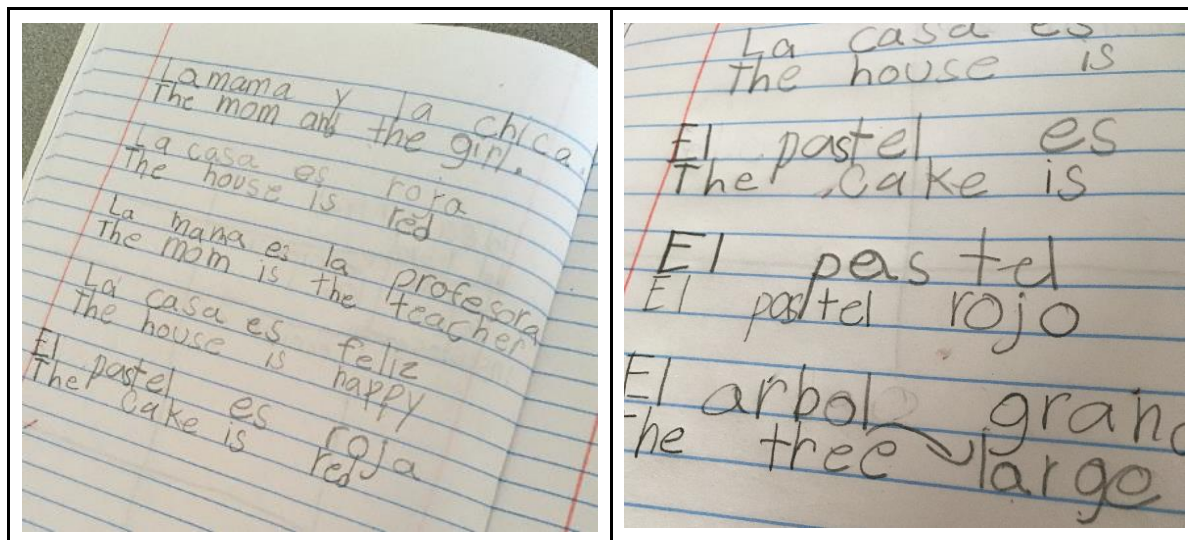 La mama y la chica.
The mom and the girl.
La casa es roja
The house is red
La mama es la profesora
The mom is the teacher
La casa es feliz
The house is happy
El pastel es roja
The cake is red
La casa es
The house is
El pastel es
The cake is
El pastel
El pastel rojo
El arbol grand
The tree large